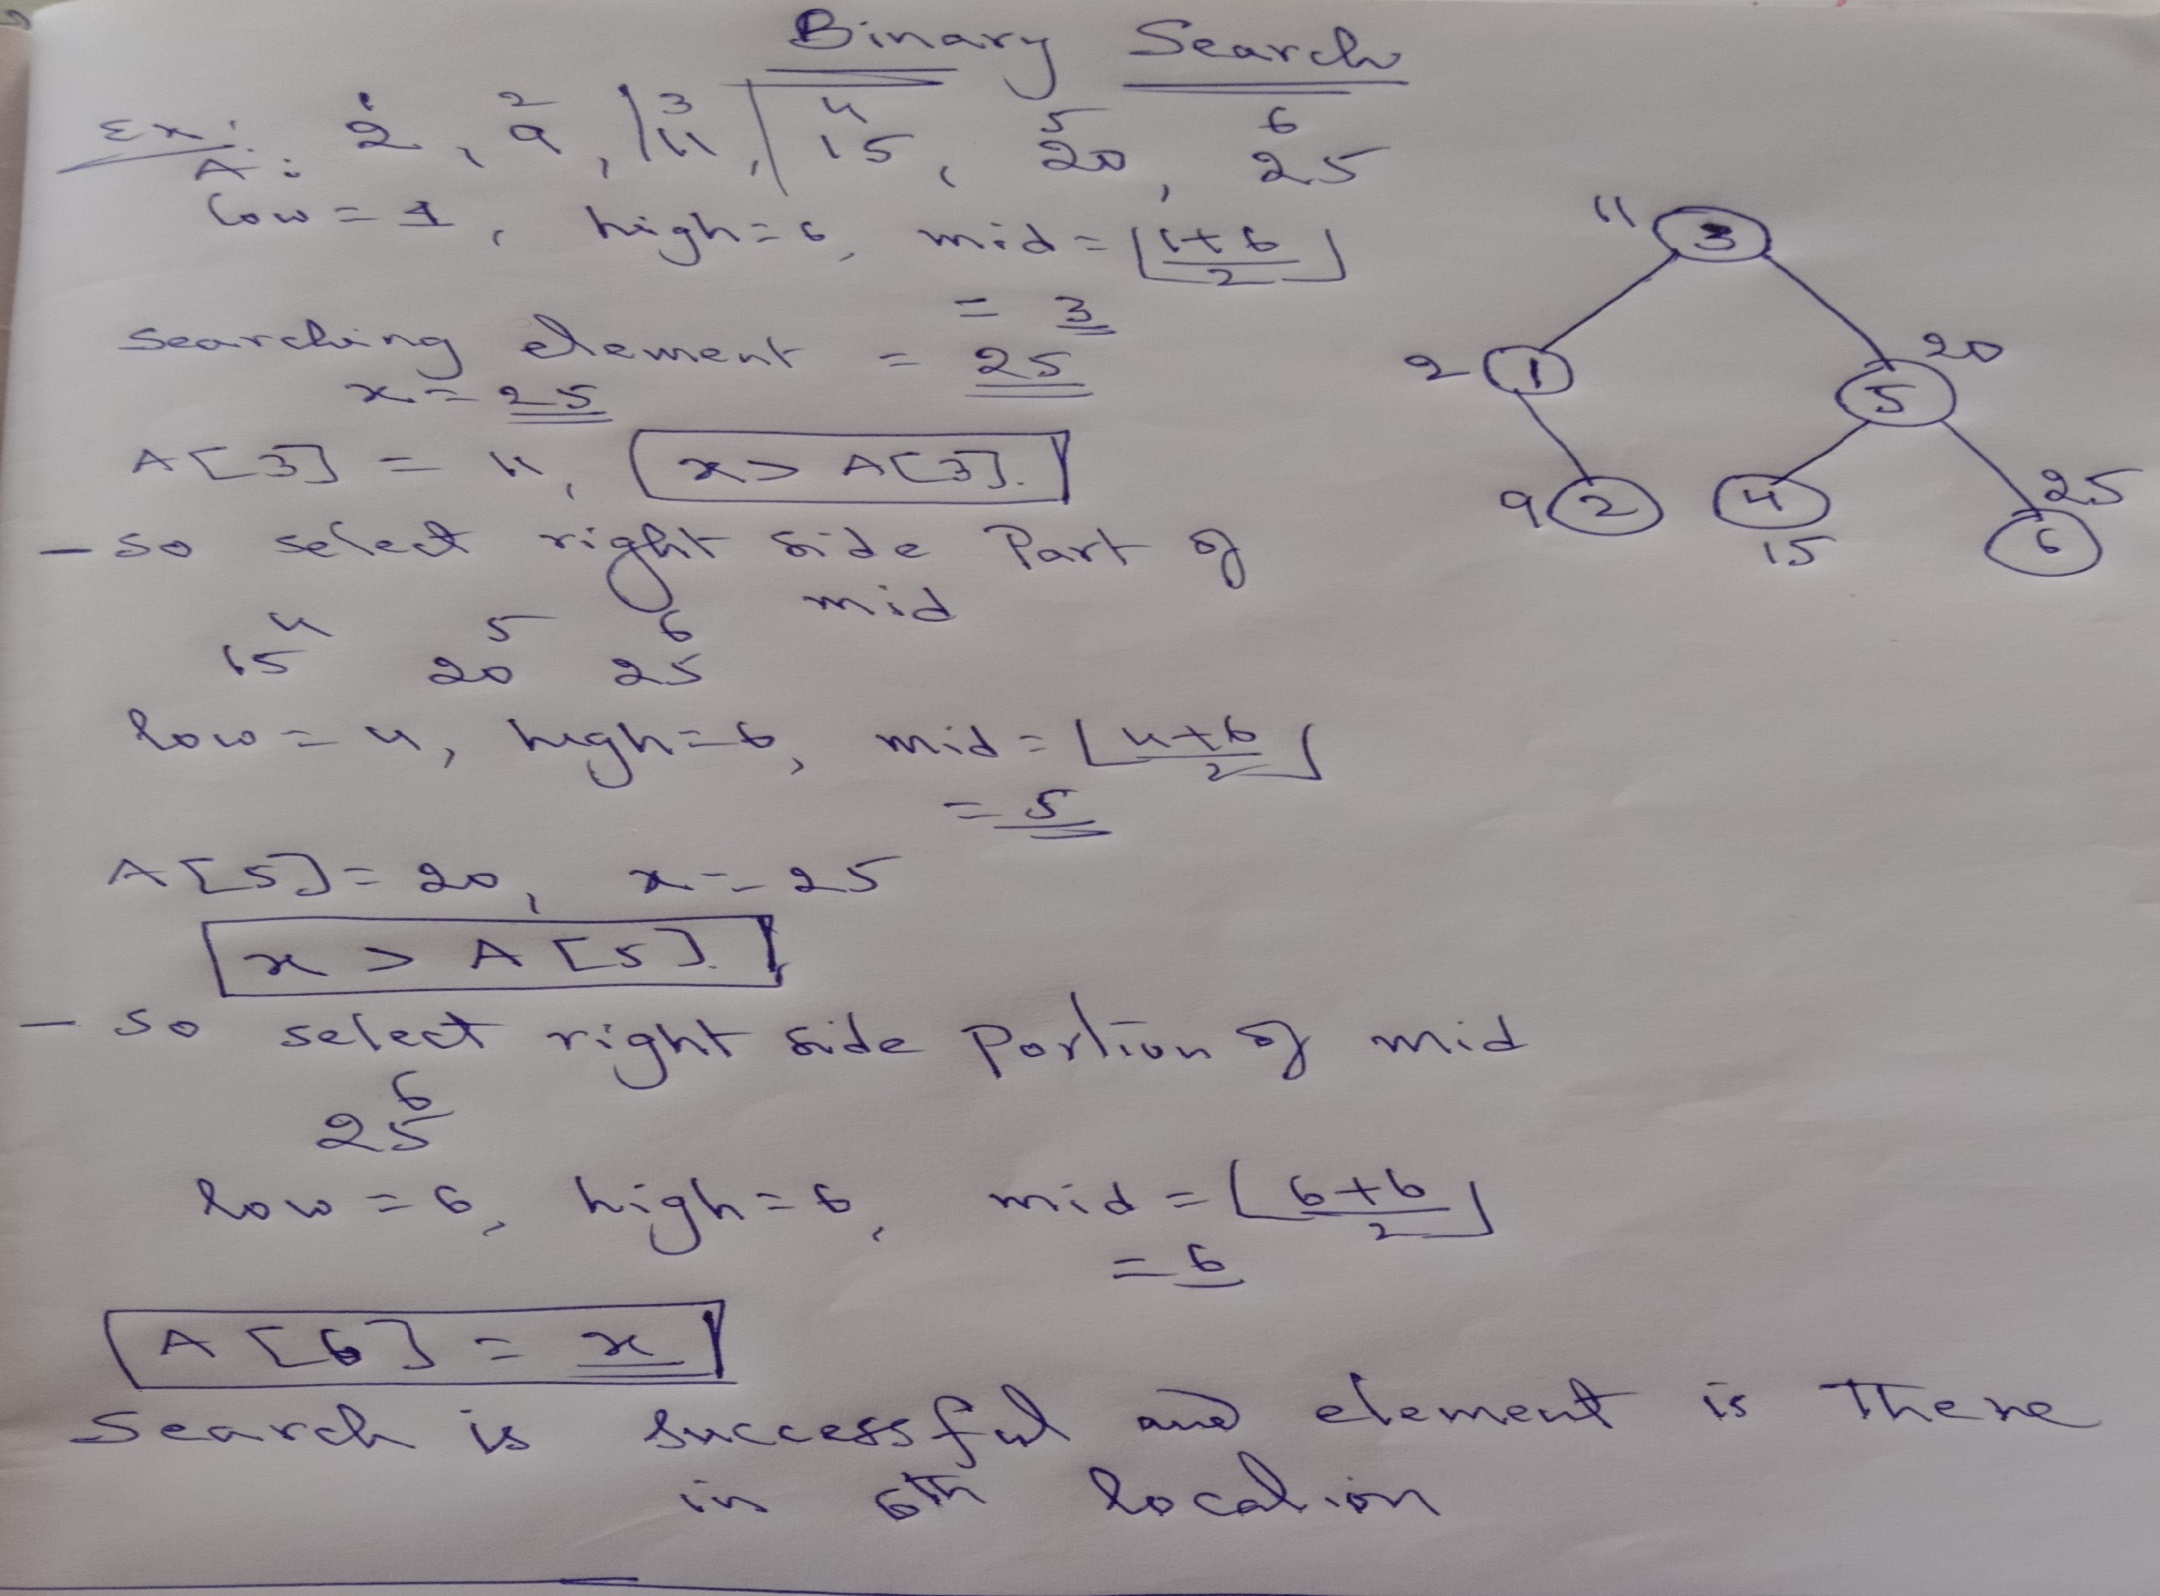 Binary Search
1 2 3 4 5 6
Ex: A: 2, 9, 11, 15, 20, 25
low = 1, high = 6, mid = ⌊(1+6)/2⌋
= 3
Searching element = 25
x = 25
A[3] = 11, x > A[3].
- so select right side Part of
mid
4 5 6
15 20 25
low = 4, high = 6, mid = ⌊(4+6)/2⌋
= 5
A[5] = 20, x = 25
x > A[5].
- so select right side Portion of mid
6
25
low = 6, high = 6, mid = ⌊(6+6)/2⌋
= 6
A[6] = x
Search is successful and element is There
in 6th location
11 3
2 1
20
5
9 2
4
15
25
6